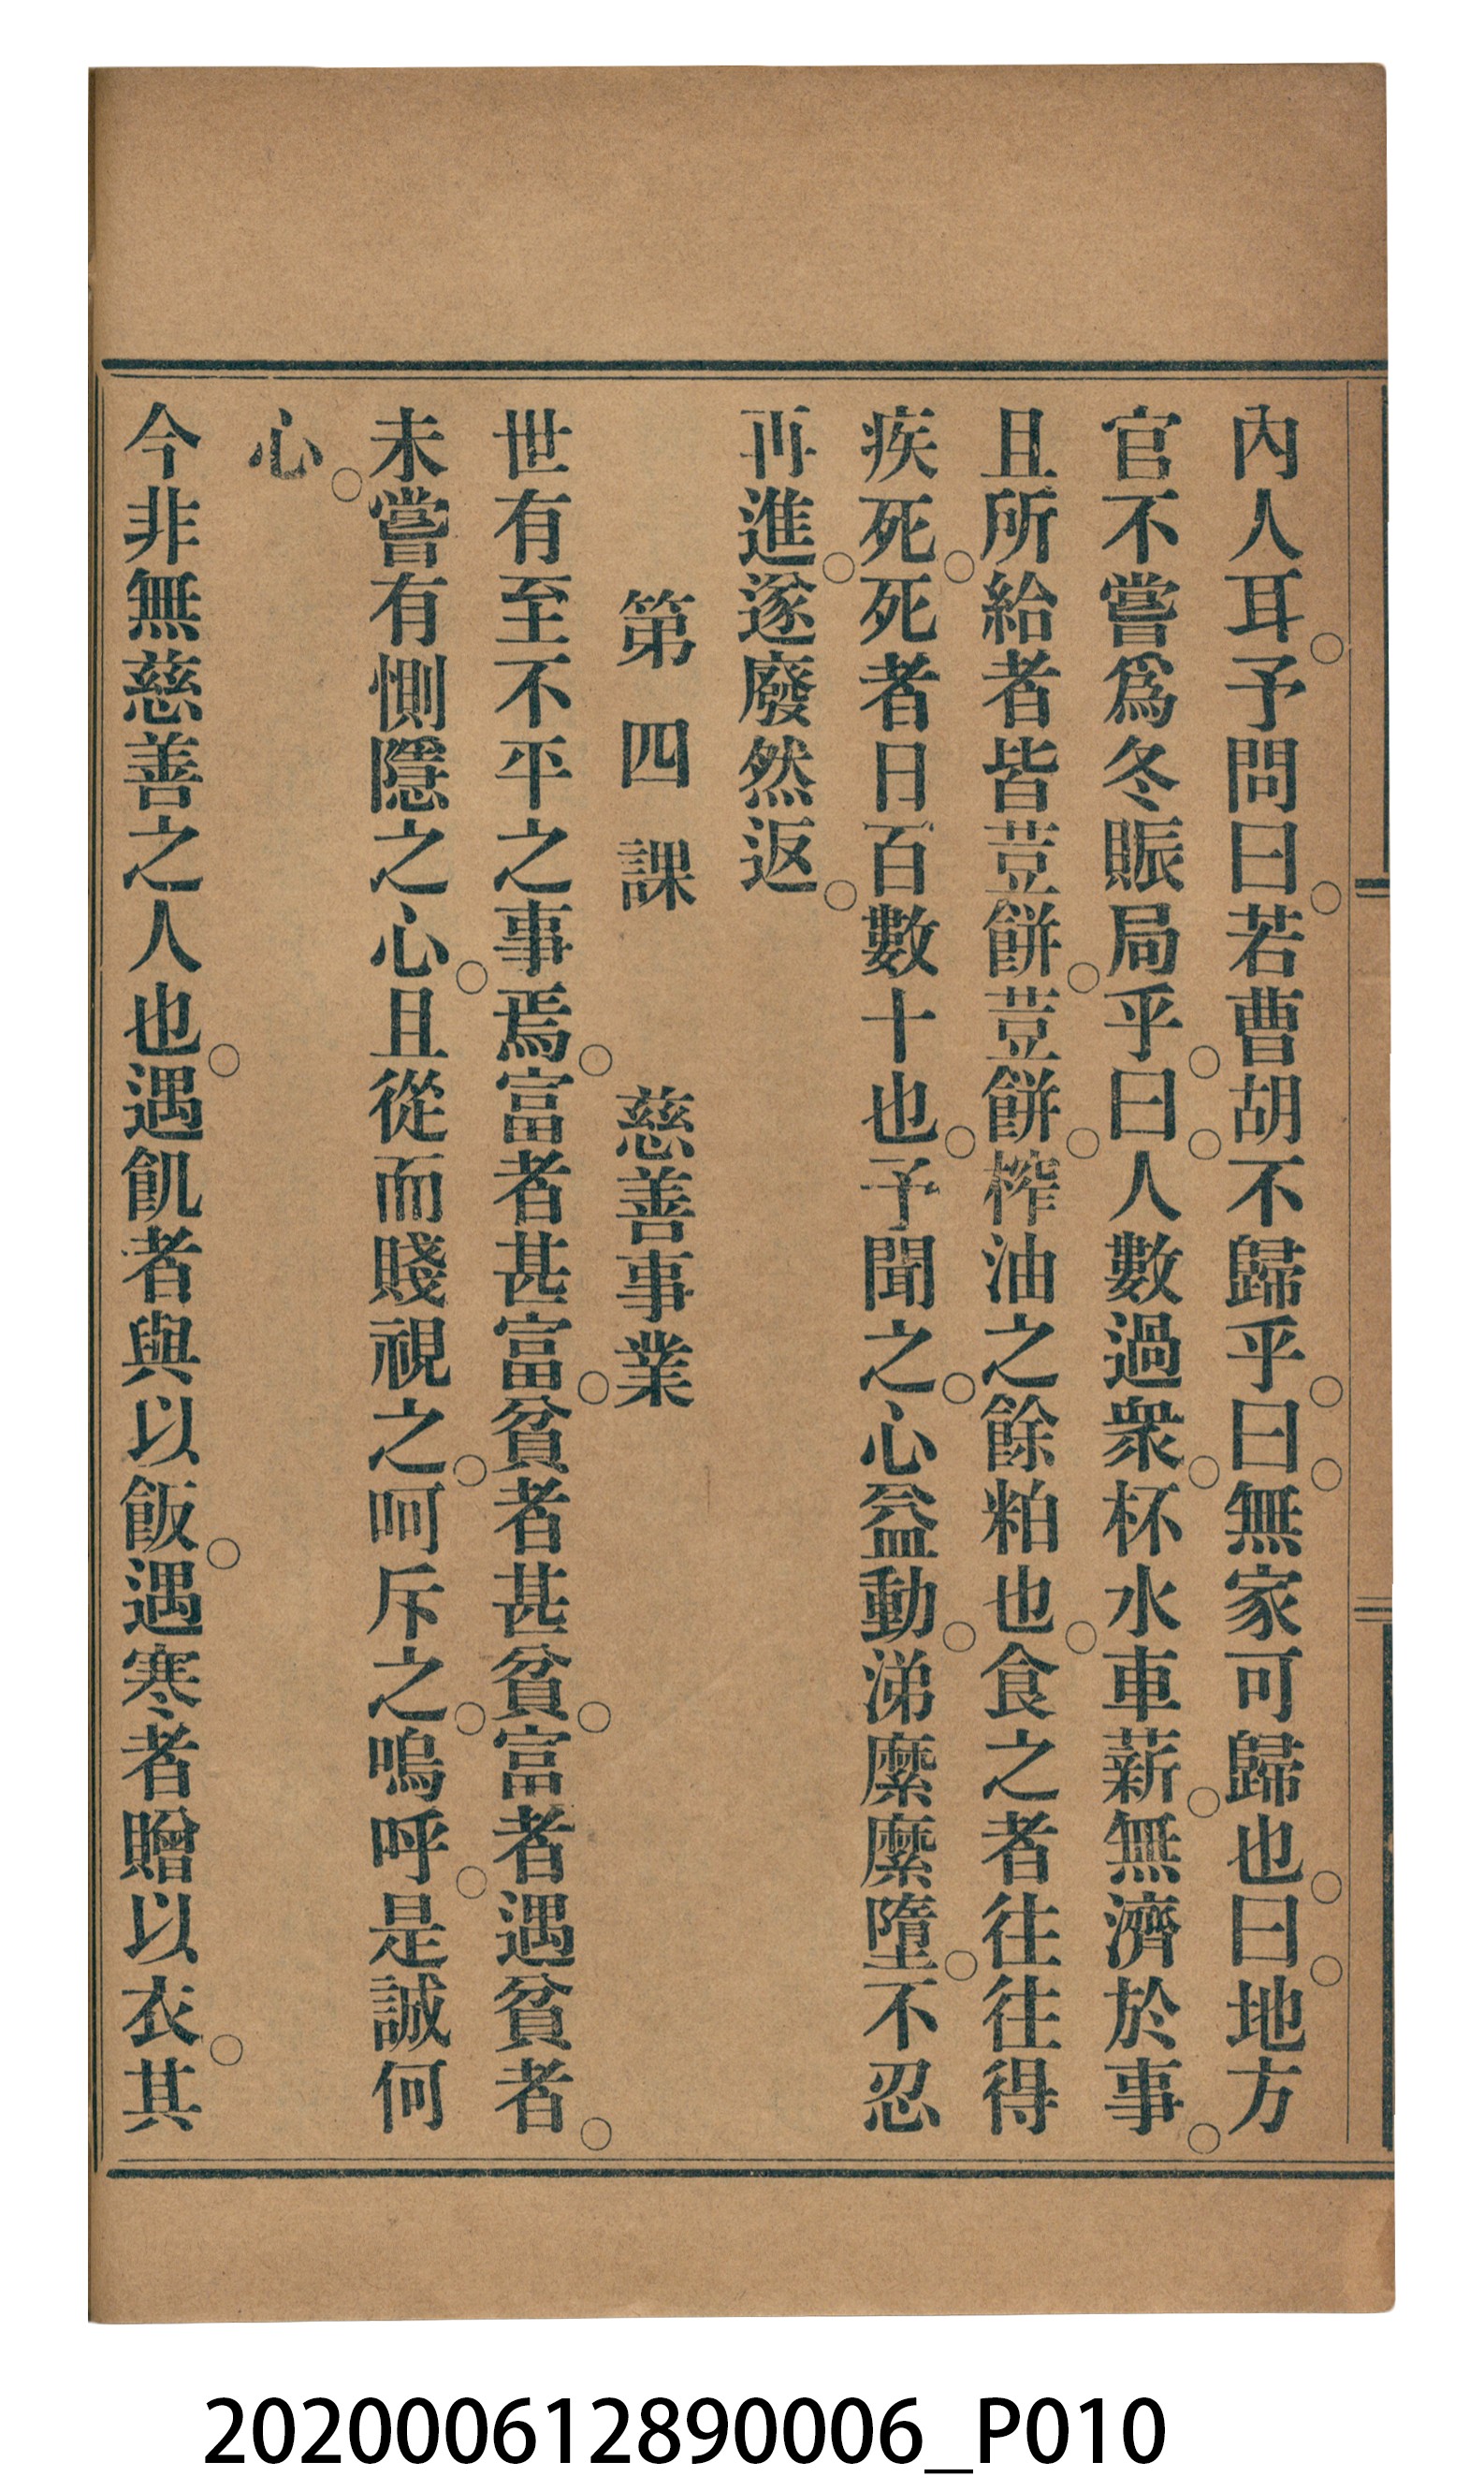 內人耳○予問曰○若曹胡不歸乎○曰○無家可歸也○曰○地方
官不嘗爲冬賑局乎○曰○人數過衆○杯水車薪○無濟於事○
且所給者皆荳餅○荳餅○榨油之餘粕也○食之者往往得
疾死○死者日百數十也○予聞之○心益動○涕縻縻墮○不忍
再進○遂廢然返○
第四課 慈善事業
世有至不平之事焉○富者甚富○貧者甚貧○富者遇貧者○
未嘗有惻隱之心○且從而賤視之○呵斥之○嗚呼○是誠何
心○
今非無慈善之人也○遇飢者與以飯○遇寒者贈以衣○其
202000612890006_P010